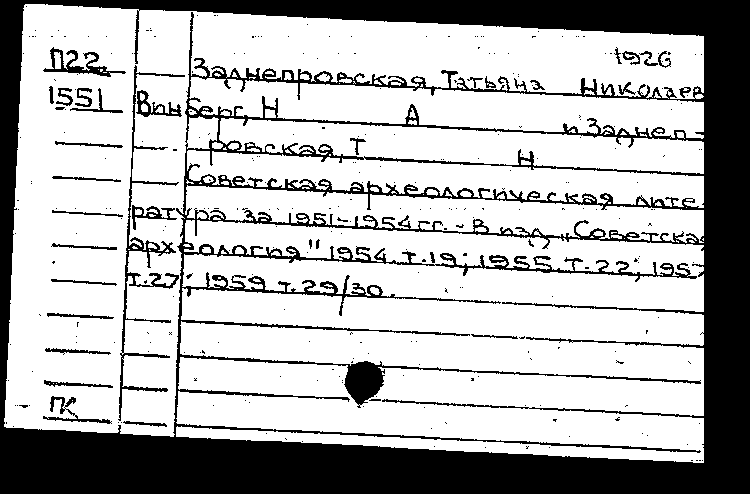 1926
П22 Заднепровская, Татьяна Николаев
1551 Винберг, Н А и Заднеп-
ровская, Т Н
Советская археологическая лите-
ратура за 1951-1954 гг. - В изд. „Советская
археология" 1954. т.19; 1955. т.22; 1957
т.27; 1959 т.29/30.
ПК